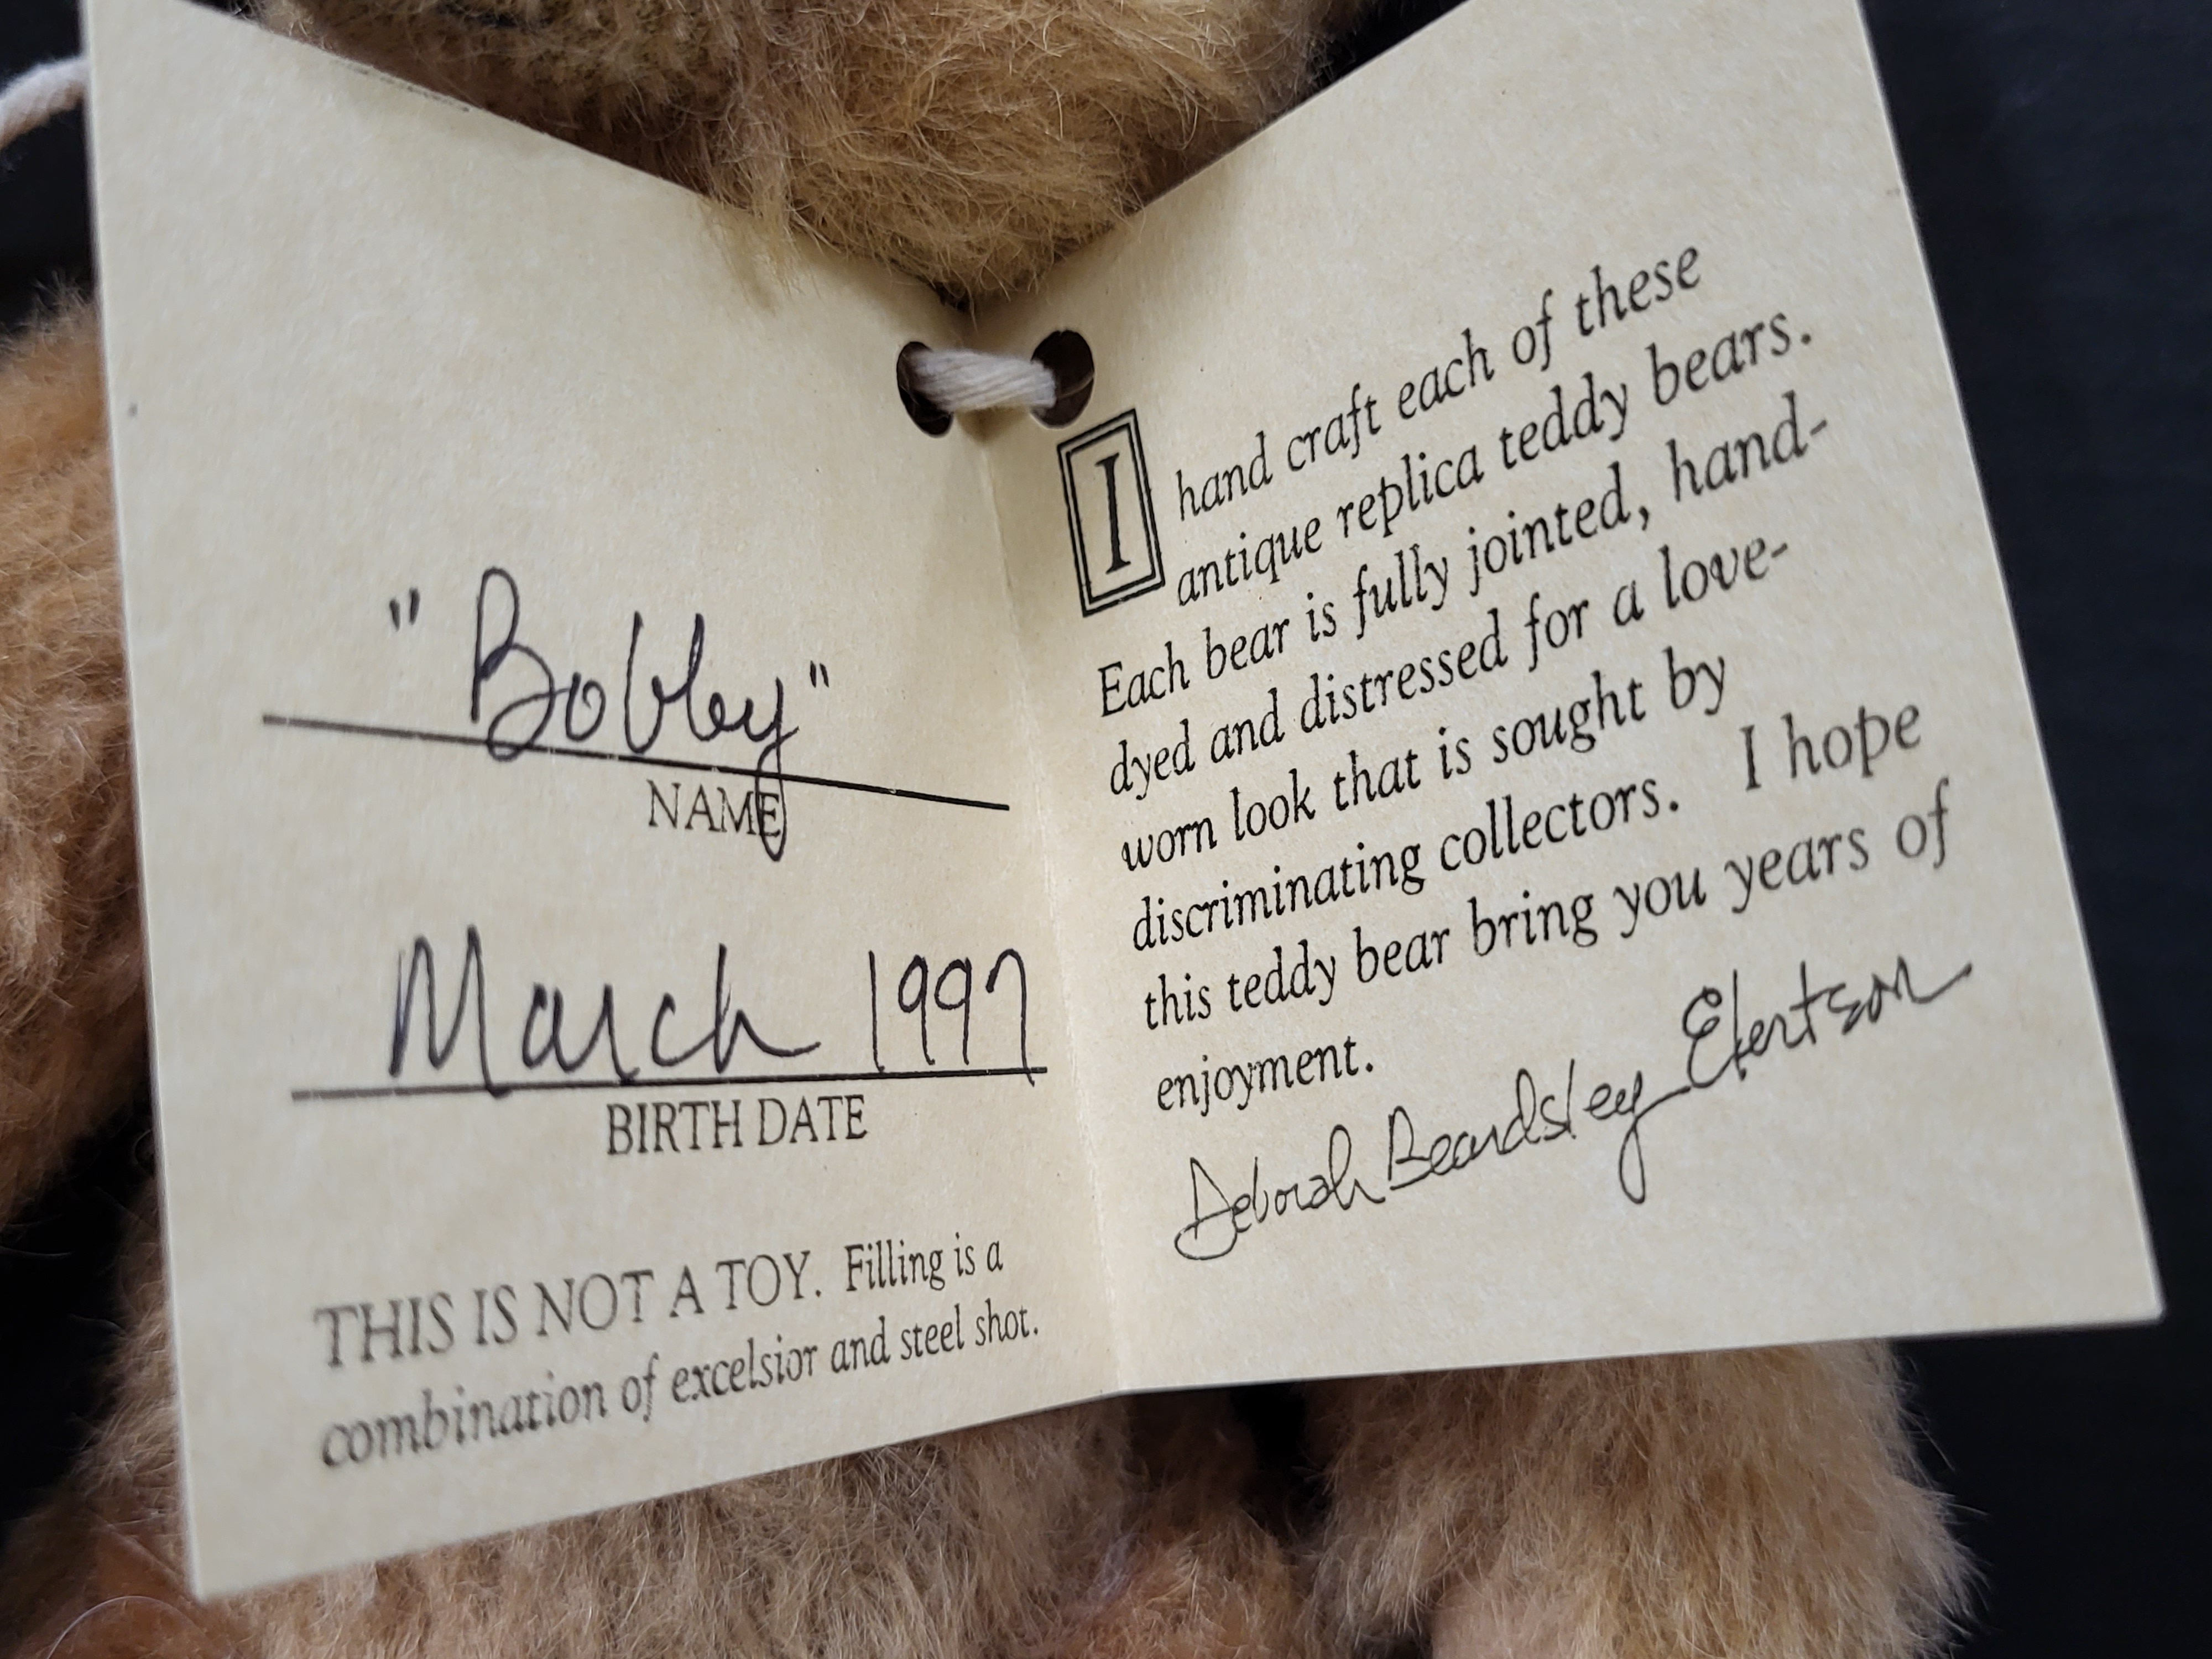 "Bobby"
NAME
March 1997
BIRTH DATE
THIS IS NOT A TOY. Filling is a
combination of excelsior and steel shot.
I hand craft each of these
antique replica teddy bears.
Each bear is fully jointed, hand-
dyed and distressed for a love-
worn look that is sought by
discriminating collectors. I hope
this teddy bear bring you years of
enjoyment.
Deborah Beardsley Ebertson